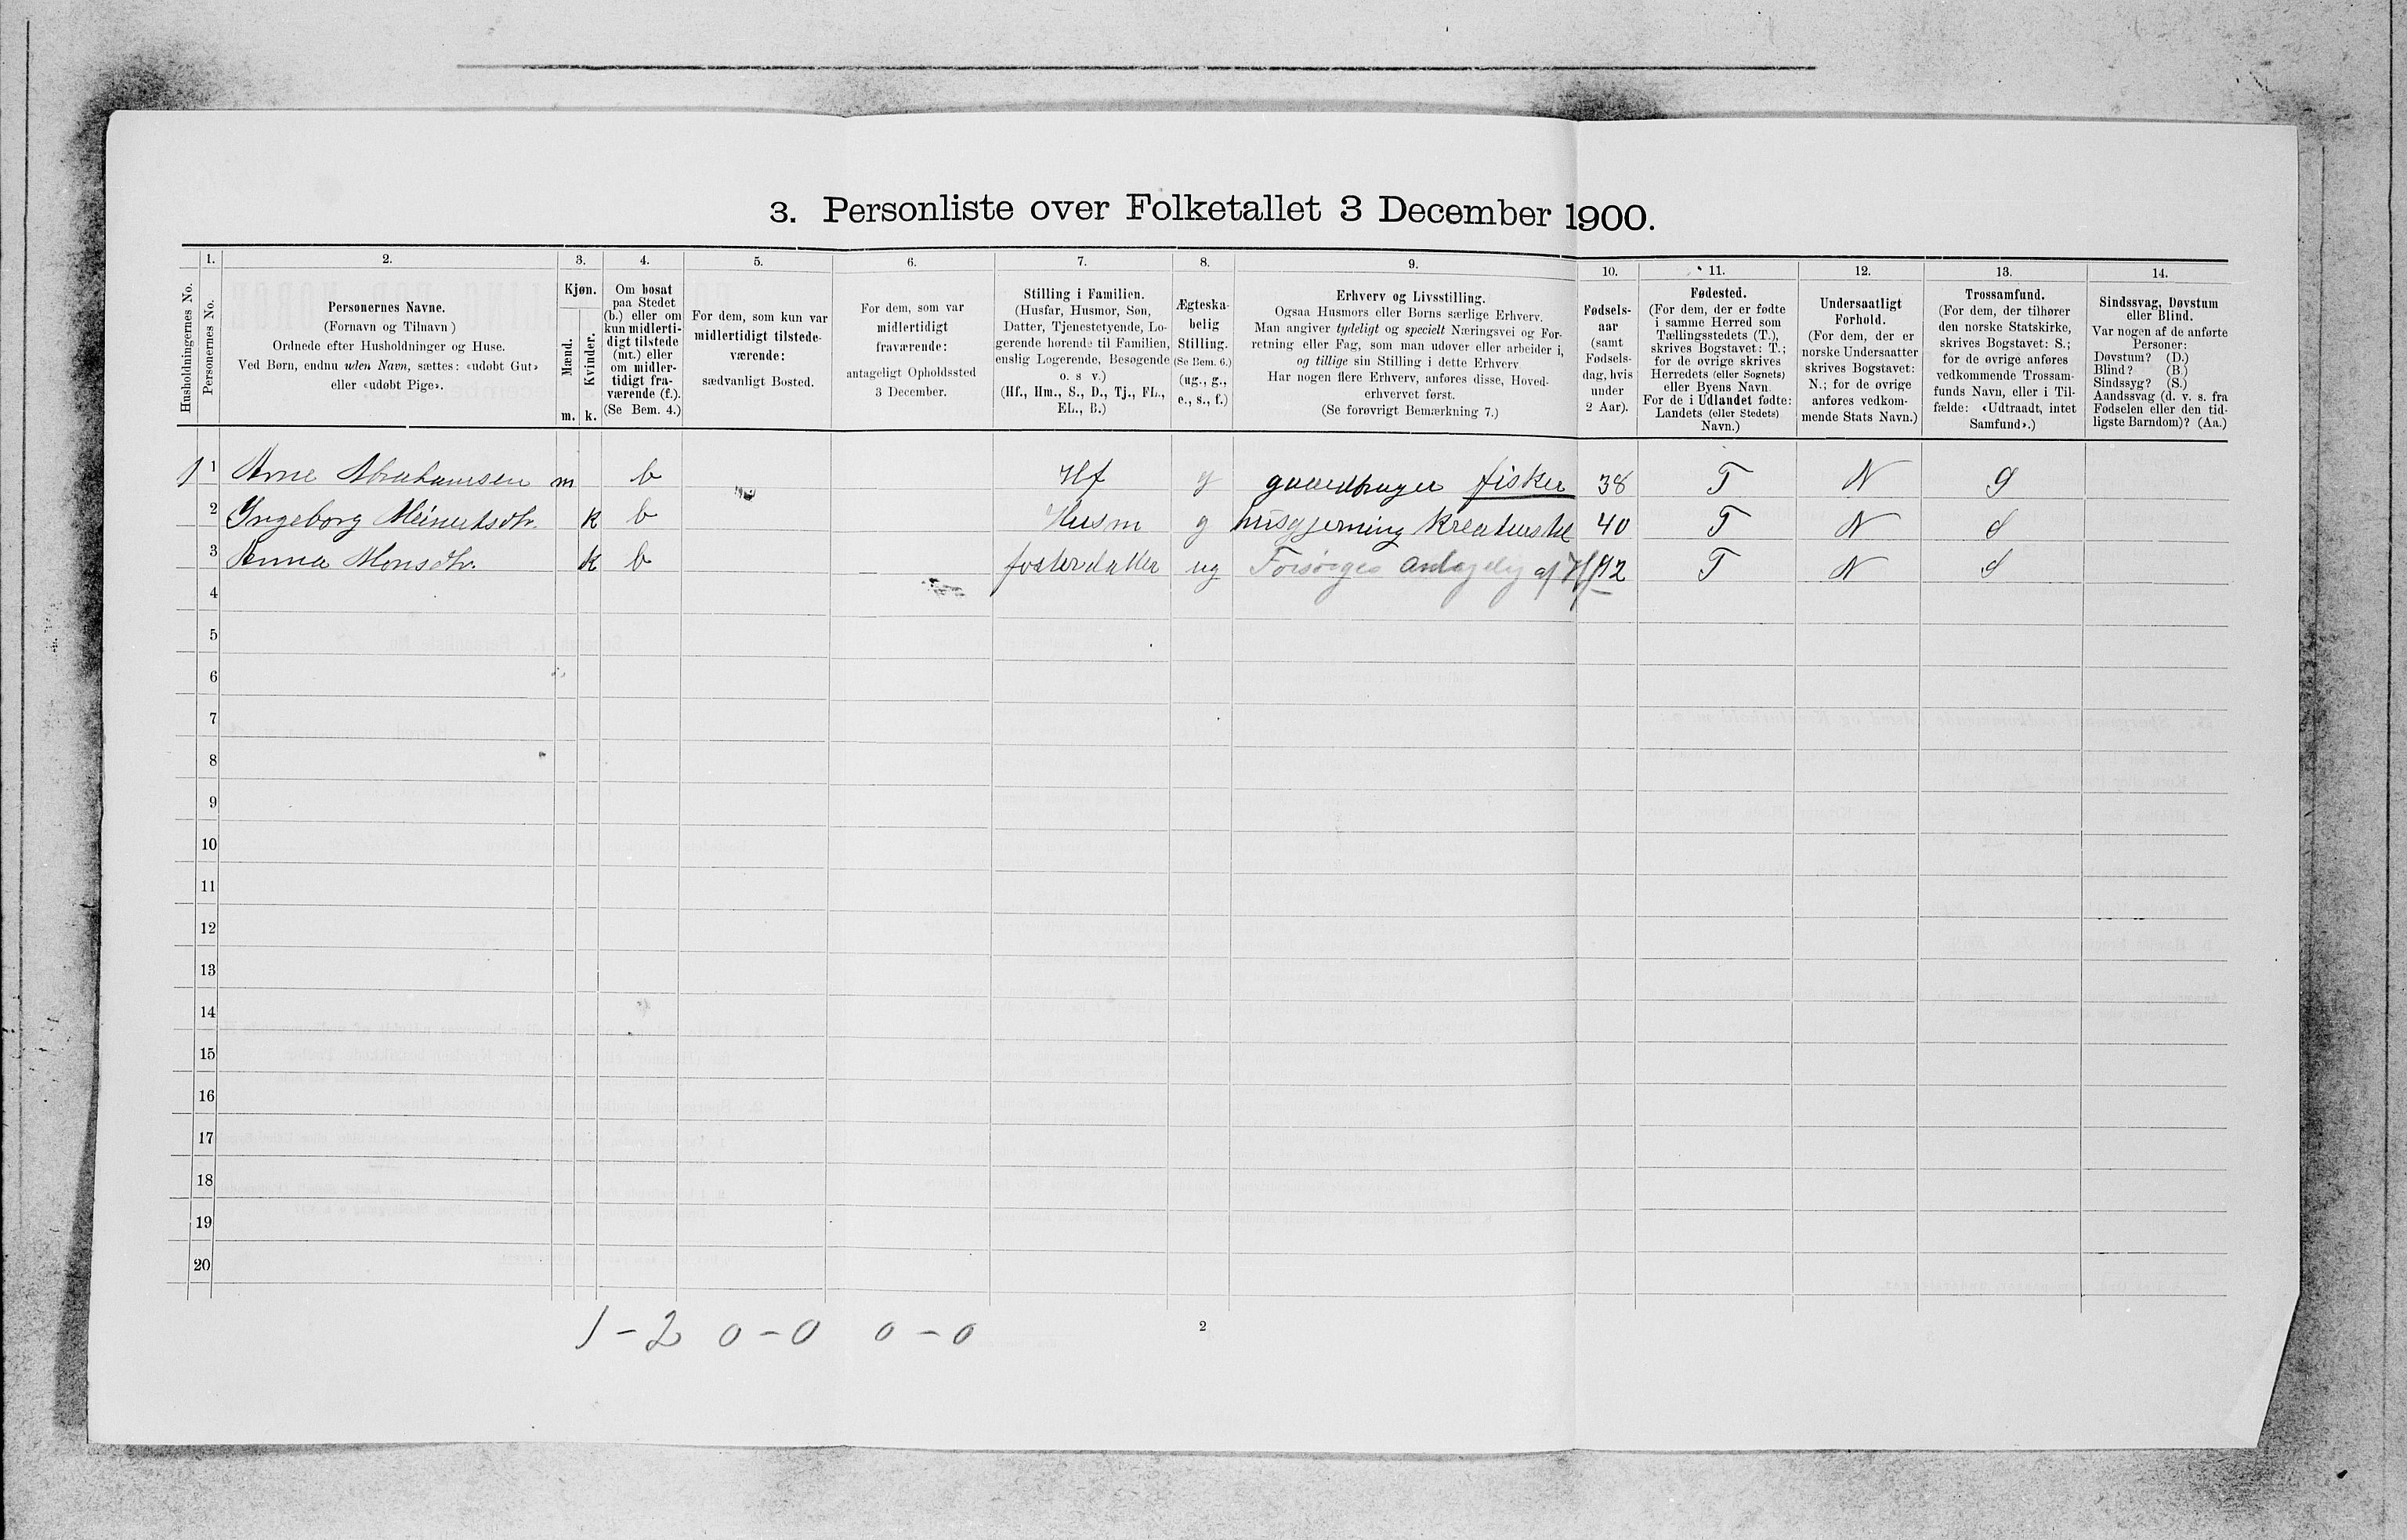 3. Personliste over Folketallet 3 December 1900.
Husholdningernes No.
1.
Personernes No.
2.
Personernes Navne.
(Fornavn og Tilnavn)
Ordnede efter Husholdninger og Huse.
Ved Børn, endnu uden Navn, sættes: «udøbt Gut»
eller «udøbt Pige».
3.
Kjøn.
Mænd.
Kvinder.
m. k.
4.
Om bosat
paa Stedet
(b.) eller om
kun midlerti-
digt tilstede
(mt.) eller
om midler-
tidigt fra-
værende (f.).
(Se Bem. 4.)
5.
For dem, som kun var
midlertidigt tilstede-
værende:
sædvanligt Bosted.
6.
For dem, som var
midlertidigt
fraværende:
antageligt Opholdssted
3 December.
7.
Stilling i Familien.
(Husfar, Husmor, Søn,
Datter, Tjenestetyende, Lo-
gerende hørende til Familien,
enslig Logerende, Besøgende
o. s v.)
(Hf., Hm., S., D., Tj., FL.,
EL., B.)
8.
Ægteska-
belig
Stilling.
(Se Bem. 6.)
(ug., g.,
e., s., f.)
9.
Erhverv og Livsstilling.
Ogsaa Husmors eller Børns særlige Erhverv.
Man angiver tydeligt og specielt Næringsvei og For-
retning eller Fag, som man udøver eller arbeider i,
og tillige sin Stilling i dette Erhverv.
Har nogen flere Erhverv, anføres disse, Hoved-
erhvervet først.
(Se forøvrigt Bemærkning 7.)
10.
Fødsels-
aar
(samt
Fødsels-
dag, hvis
under
2 Aar).
11.
Fødested.
(For dem, der er fødte
i samme Herred som
Tællingsstedets (T.),
skrives Bogstavet: T.;
for de øvrige skrives
Herredets (eller Sognets)
eller Byens Navn.
For de i Udlandet fødte:
Landets (eller Stedets)
Navn.)
12.
Undersaatligt
Forhold.
(For dem, der er
norske Undersaatter
skrives Bogstavet:
N.; for de øvrige
anføres vedkom-
mende Stats Navn.)
13.
Trossamfund.
(For dem, der tilhører
den norske Statskirke,
skrives Bogstavet: S.;
for de øvrige anføres
vedkommende Trossam-
funds Navn, eller i Til-
fælde: «Udtraadt, intet
Samfund».)
14.
Sindssvag, Døvstum
eller Blind.
Var nogen af de anførte
Personer:
Døvstum? (D.)
Blind? (B.)
Sindssyg? (S.)
Aandssvag (d. v. s. fra
Fødselen eller den tid-
ligste Barndom)? (Aa.)
1 1 Arne Abrahamsen m b Hf g gaardbruger fisker 38 T N S
2 Ingeborg Meinertsdtr. k b Husm g husgjerning kreaturstel 40 T N S
3 Anna Monsdtr. k b fosterdatter ug Forsørges af Hf 92 T N S
4
5
6
7
8
9
10
11
12
13
14
15
16
17
18
19
20
1 - 2 0 - 0 0 - 0
2